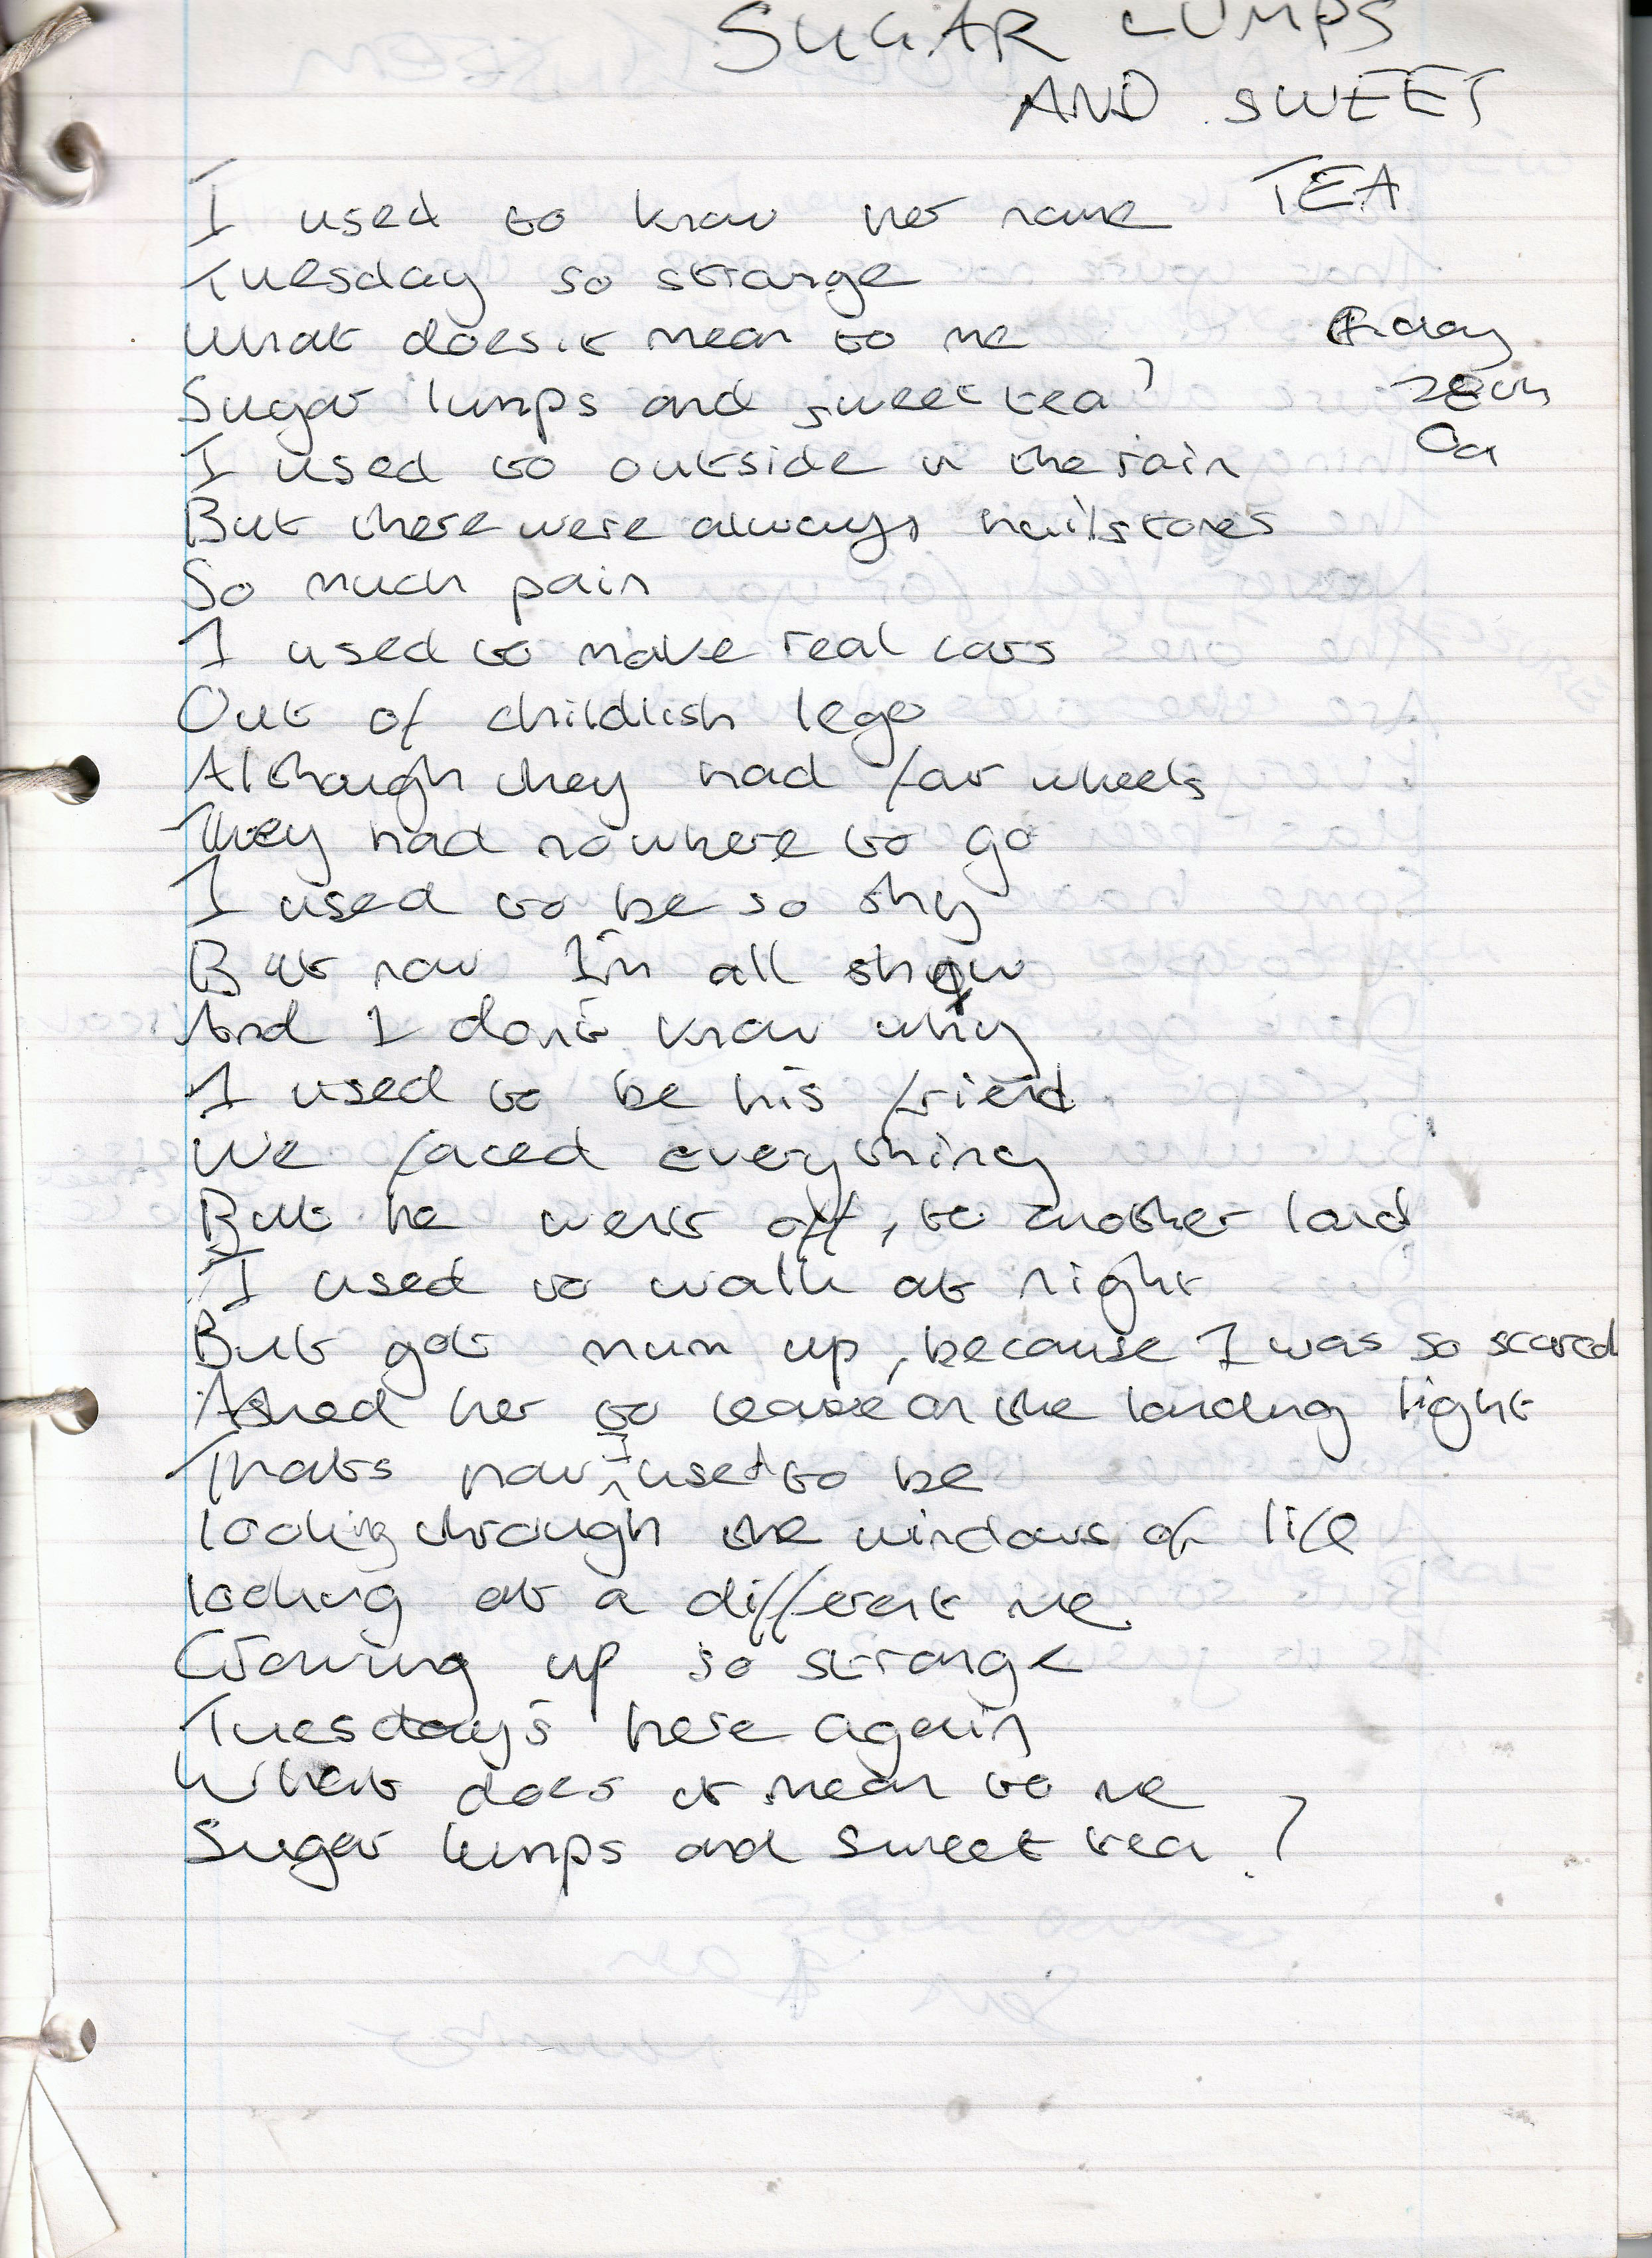 SUGAR LUMPS
AND SWEET
TEA
I used to know her name
Tuesday so strange
What does it mean to me
Friday
Sugar lumps and sweet tea?
28th
Oct
I used to outside in the rain
But there were always hailstones
So much pain
I used to make real cars
Out of childlish lego
Although they had four wheels
They had nowhere to go
I used to be so shy
But now I'm all show
And I don't know why
I used to be his friend
We faced everything
But he went off, to another land
I used to walk at night
But got mum up, because I was so scared
Asked her to leave on the landing light
Thats how I used to be
looking through the windows of life
looking at a different me.
Growing up so strange
Tuesday's here again
What does it mean to me
Sugar lumps and sweet tea?